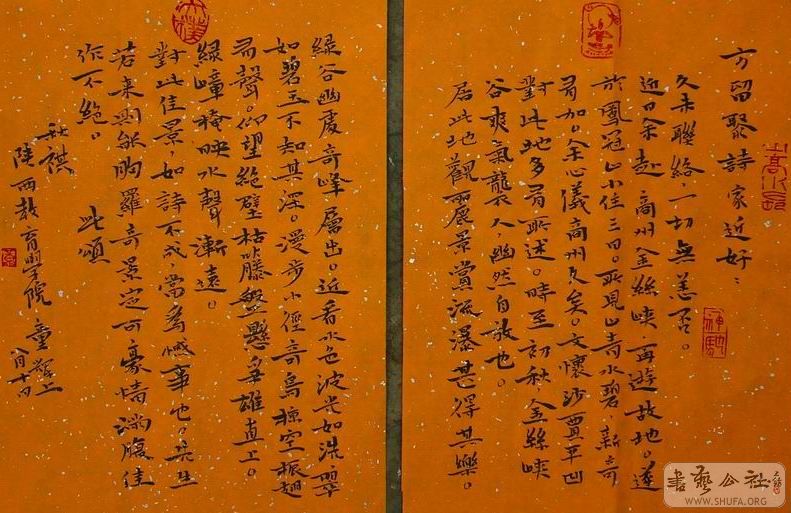 方留聚詩家近好：
久未聯絡，一切無恙否。
近日余赴商州金絲峽，再遊故地。遂
於鳳冠山小住三日。所見山青水碧，新奇
有加。余心儀商州久矣。文懷沙賈平凹
對此地多有所述。時至初秋金絲峽
谷爽氣襲人，幽然自放也。
居此地觀麗景賞流瀑甚得其樂。
綠谷幽處奇峰層出。近看水色波光如洗翠
如碧玉不知其深。漫步小徑奇鳥掠空振翅
有聲。仰望絕壁枯藤盤懸爭雄直上。
綠嶂掩映水聲漸遠。
對此佳景，如詩不成，當為憾事也。先生
若来則能胸羅奇景定可豪情满腹佳
作不絕。
此頌
秋祺
陕西教育學院 童輝上
八月十四
神馳
書藝公社
WWW.SHUFA.ORG